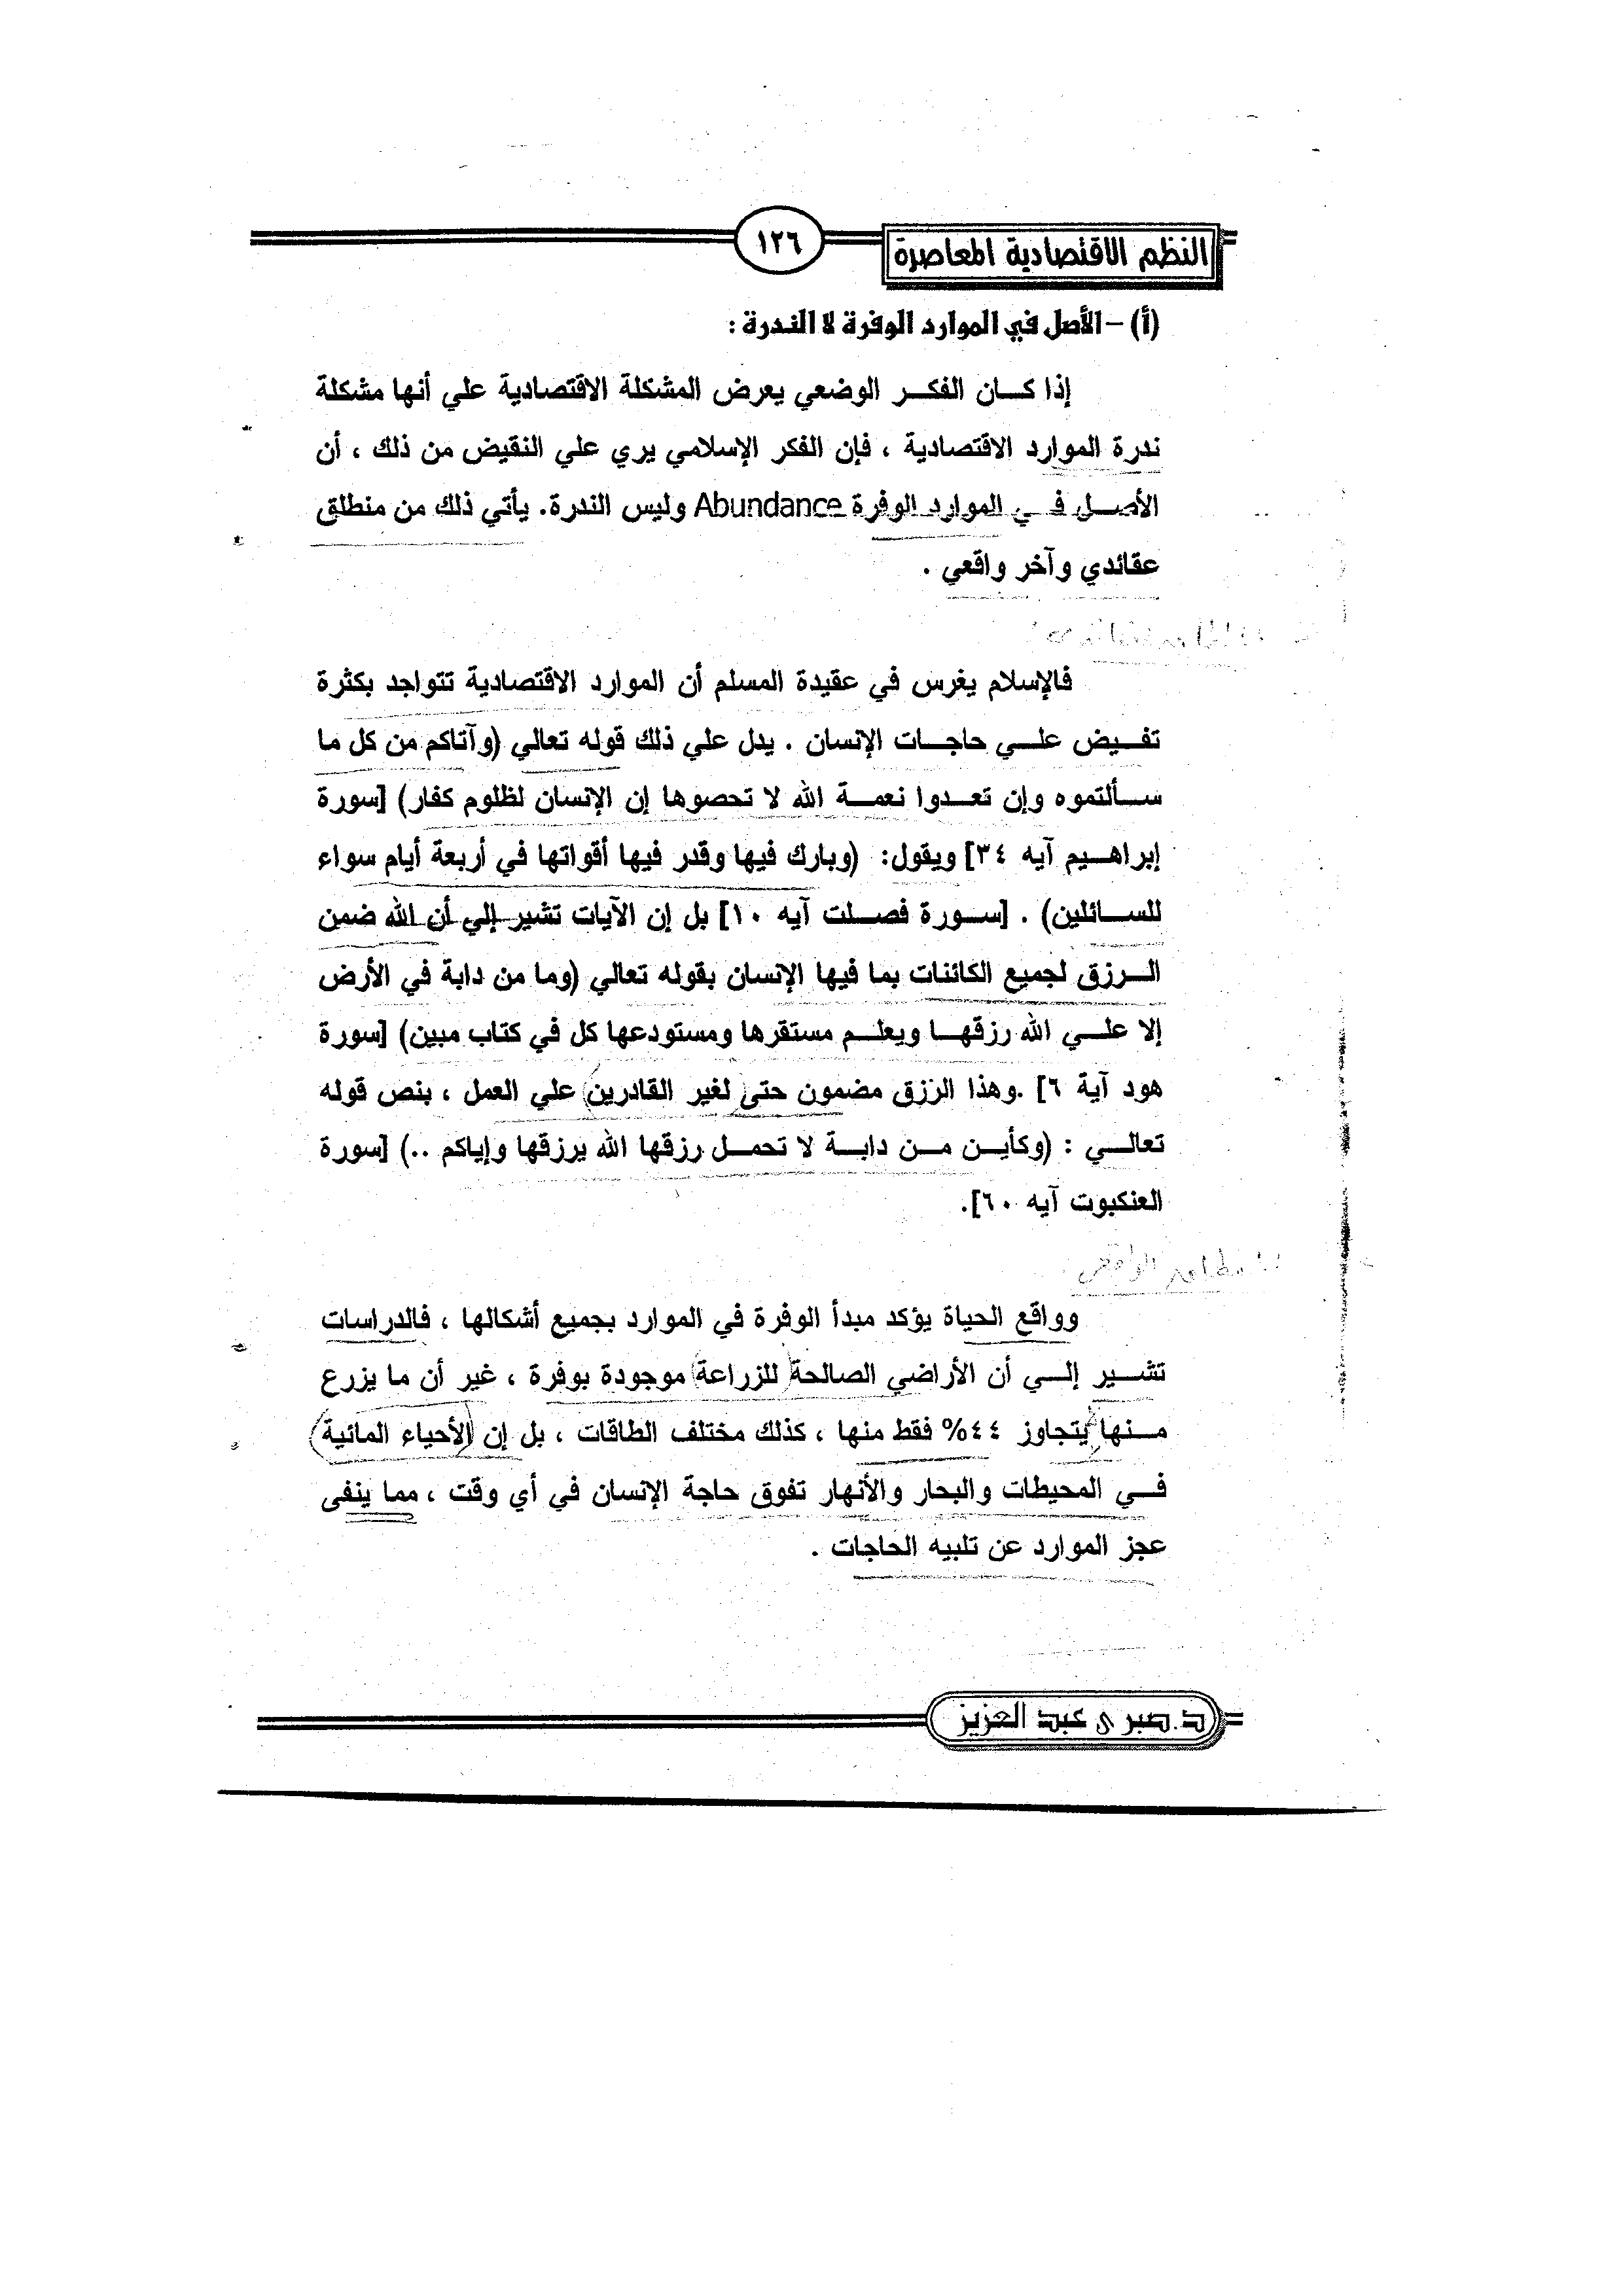 النظم الاقتصادية المعاصرة
١٢٦
(أ) – الأصل في الموارد الوفرة لا الندرة :
إذا كان الفكر الوضعي يعرض المشكلة الاقتصادية علي أنها مشكلة
ندرة الموارد الاقتصادية ، فإن الفكر الإسلامي يري علي النقيض من ذلك ، أن
الأصل في الموارد الوفرة Abundance وليس الندرة. يأتي ذلك من منطلق
عقائدي وآخر واقعي .
فالإسلام يغرس في عقيدة المسلم أن الموارد الاقتصادية تتواجد بكثرة
تفيض علي حاجات الإنسان . يدل علي ذلك قوله تعالي (وآتاكم من كل ما
سألتموه وإن تعدوا نعمة الله لا تحصوها إن الإنسان لظلوم كفار) [سورة
إبراهيم آيه ٣٤] ويقول: (وبارك فيها وقدر فيها أقواتها في أربعة أيام سواء
للسائلين) . [سورة فصلت آيه ١٠] بل إن الآيات تشير إلي أن الله ضمن
الرزق لجميع الكائنات بما فيها الإنسان بقوله تعالي (وما من دابة في الأرض
إلا علي الله رزقها ويعلم مستقرها ومستودعها كل في كتاب مبين) [سورة
هود آية ٦] .وهذا الرزق مضمون حتى لغير القادرين علي العمل ، بنص قوله
تعالي : (وكأين من دابة لا تحمل رزقها الله يرزقها وإياكم ..) [سورة
العنكبوت آيه ٦٠].
المنطلق الواقعي
وواقع الحياة يؤكد مبدأ الوفرة في الموارد بجميع أشكالها ، فالدراسات
تشير إلي أن الأراضي الصالحة للزراعة موجودة بوفرة ، غير أن ما يزرع
منها يتجاوز ٤٤% فقط منها ، كذلك مختلف الطاقات ، بل إن (الأحياء المائية)
في المحيطات والبحار والأنهار تفوق حاجة الإنسان في أي وقت ، مما ينفى
عجز الموارد عن تلبيه الحاجات .
د.صبرى عبد العزيز